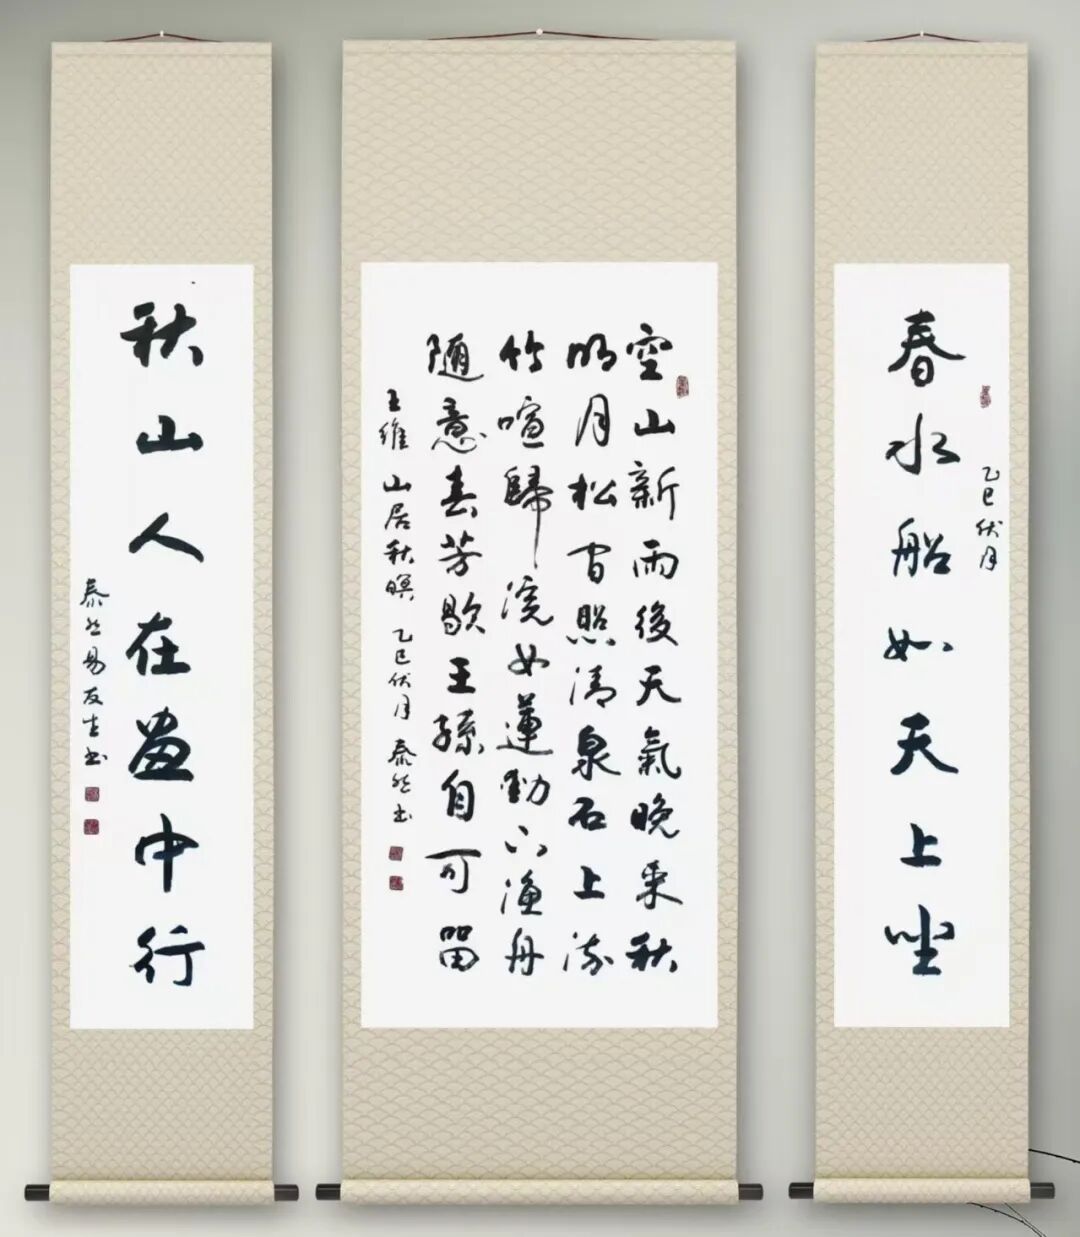 春水船如天上坐
乙巳伏月
空山新雨後天氣晚来秋
明月松間照清泉石上流
竹喧歸浣女蓮動下漁舟
随意春芳歇王孫自可留
王維 山居秋暝 乙巳伏月 泰然书
秋山人在畫中行
泰然易友生书